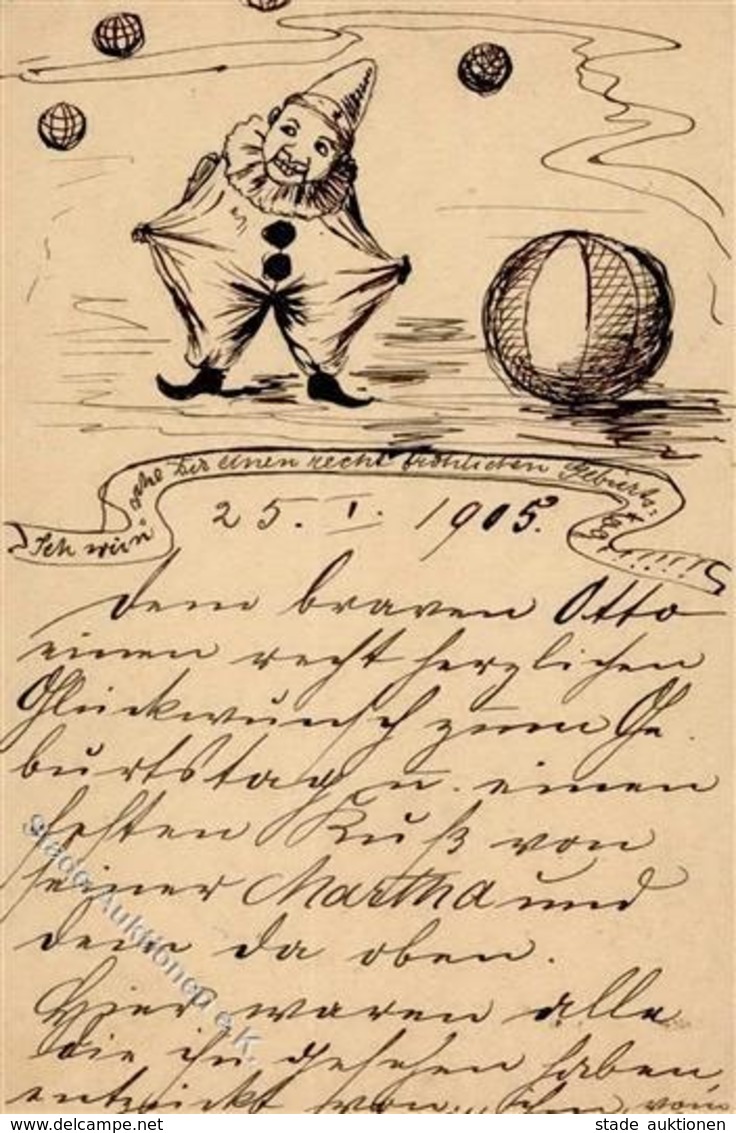 Ich wünsche Dir einen recht fröhlichen Geburtstag!!!!!!
25. I. 1905.
Dem braven Otto
einen recht herzlichen
Glückwunsch zum Ge
burtstag u. einen
festen Kuß von
seiner Martha und
dem da oben.
Hier waren alle
die ihn gesehen haben,
entzückt von ihm, vom
stade Auktionen e.K.
www.delcampe.net
stade auktionen